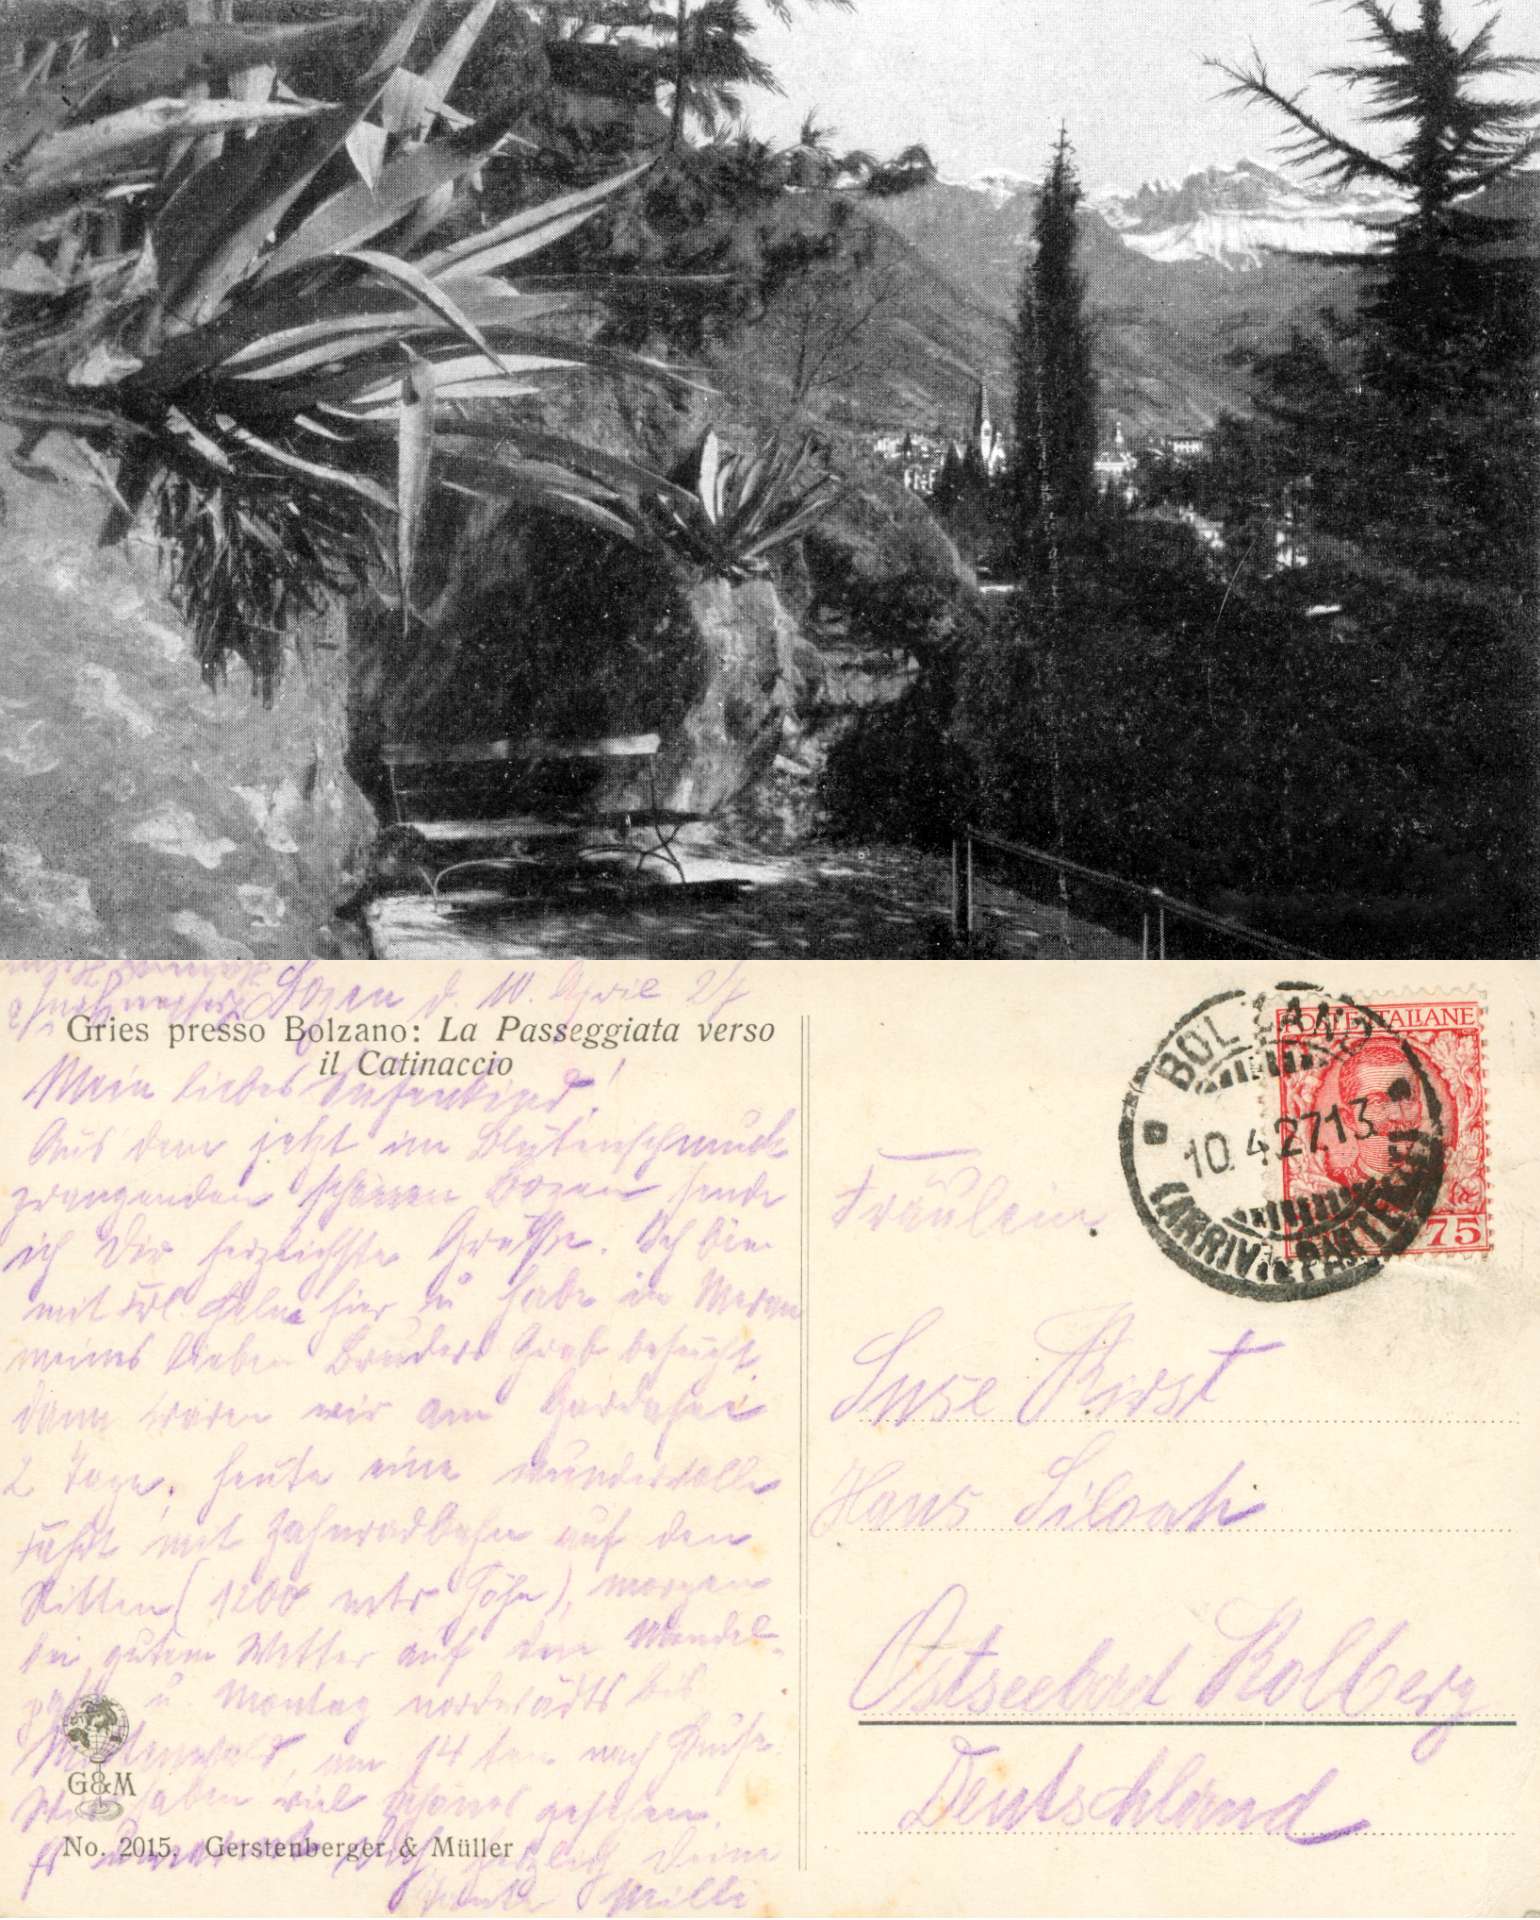 Bozen d. 10. April 27
Gries presso Bolzano: La Passeggiata verso
il Catinaccio
Mein liebes Susenkind!
Aus dem jetzt im Blütenschmuck
prangenden schönen Bozen sende
ich Dir herzlichste Grüße. Ich bin
mit Frl. hier u habe in Meran
meines lieben Bruders Grab besucht,
dann waren wir am Gardasee
2 Tage, heute eine wundervolle
Fahrt mit Zahnradbahn auf den
Ritten (1200 mtr Höhe), morgen
bei gutem Wetter auf den Mendel-
paß u. Montag nordwärts bis
Mittenwald, am 14ten nach Hause.
Wir haben viel schönes gesehen.
Es umarmt Dich herzlich Deine
Tante Milli
G&M
No. 2015. Gerstenberger & Müller
BOLZANO
10.4.27.13
(ARRIVI E PARTENZE)
POSTE ITALIANE
75
Fräulein
Suse Kirst
Haus Siloah
Ostseebad Kolberg
Deutschland